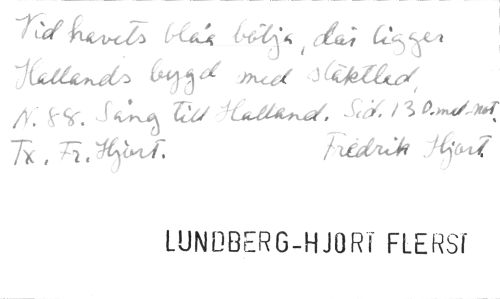 Vid havets blåa bölja, där ligger
Hallands bygd med släktled,
N. 88. Sång till Halland. Sid. 13 D.mel-not.
Tx. Fr. Hjort. Fredrik Hjort.
LUNDBERG-HJORT FLERST